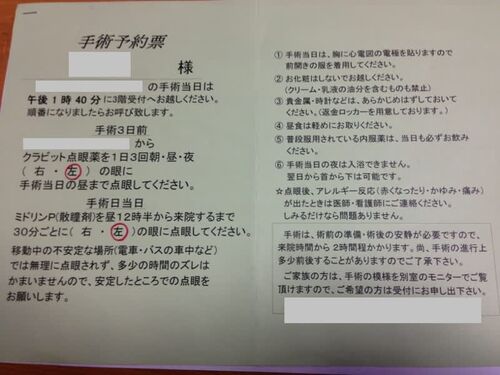 手術予約票
様
の手術当日は
午後1時40分に3階受付へお越しください。
順番になりましたらお呼び致します。
手術3日前
から
クラビット点眼薬を1日3回朝・昼・夜
( 右 ・ 左 ) の眼に
手術当日の昼まで点眼してください。
手術日当日
ミドリンP(散瞳剤)を昼12時半から来院するまで
30分ごとに( 右 ・ 左 )の眼に点眼してください。
移動中の不安定な場所(電車・バスの車中など)
では無理に点眼されず、多少の時間のズレは
かまいませんので、安定したところでの点眼を
お願いします。
① 手術当日は、胸に心電図の電極を貼りますので
前開きの服を着用してください。
② お化粧はしないでお越しください。
(クリーム・乳液の油分を含むものも禁止)
③ 貴金属・時計などは、あらかじめはずしておいて
ください。(返金ロッカーを用意しております。)
④ 昼食は軽めにお取りください。
⑤ 普段服用されている内服薬は、当日も必ずお飲み
ください。
⑥ 手術当日の夜は入浴できません。
翌日から首から下は可能です。
☆点眼後、アレルギー反応(赤くなったり・かゆみ・痛み)
が出たときは医師・看護師にご連絡ください。
しみるだけなら問題ありません。
手術は、術前の準備・術後の安静が必要ですので、
来院時間から2時間程かかります。尚、手術の進行上
多少前後することがありますのでご了承下さい。
ご家族の方は、手術の模様を別室のモニターでご覧
頂けますので、ご希望の方は受付にお申し出下さい。